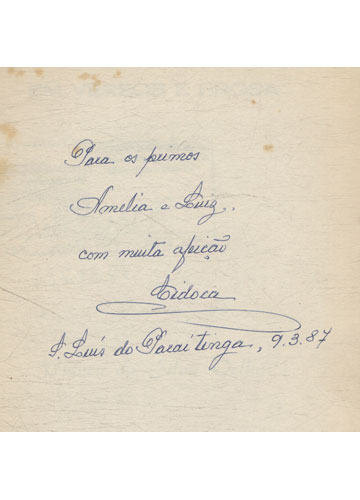 Para os primos
Amelia e Luiz..
com muita afeição
Cidoca
S. Luís do Paraitinga, 9.3.87